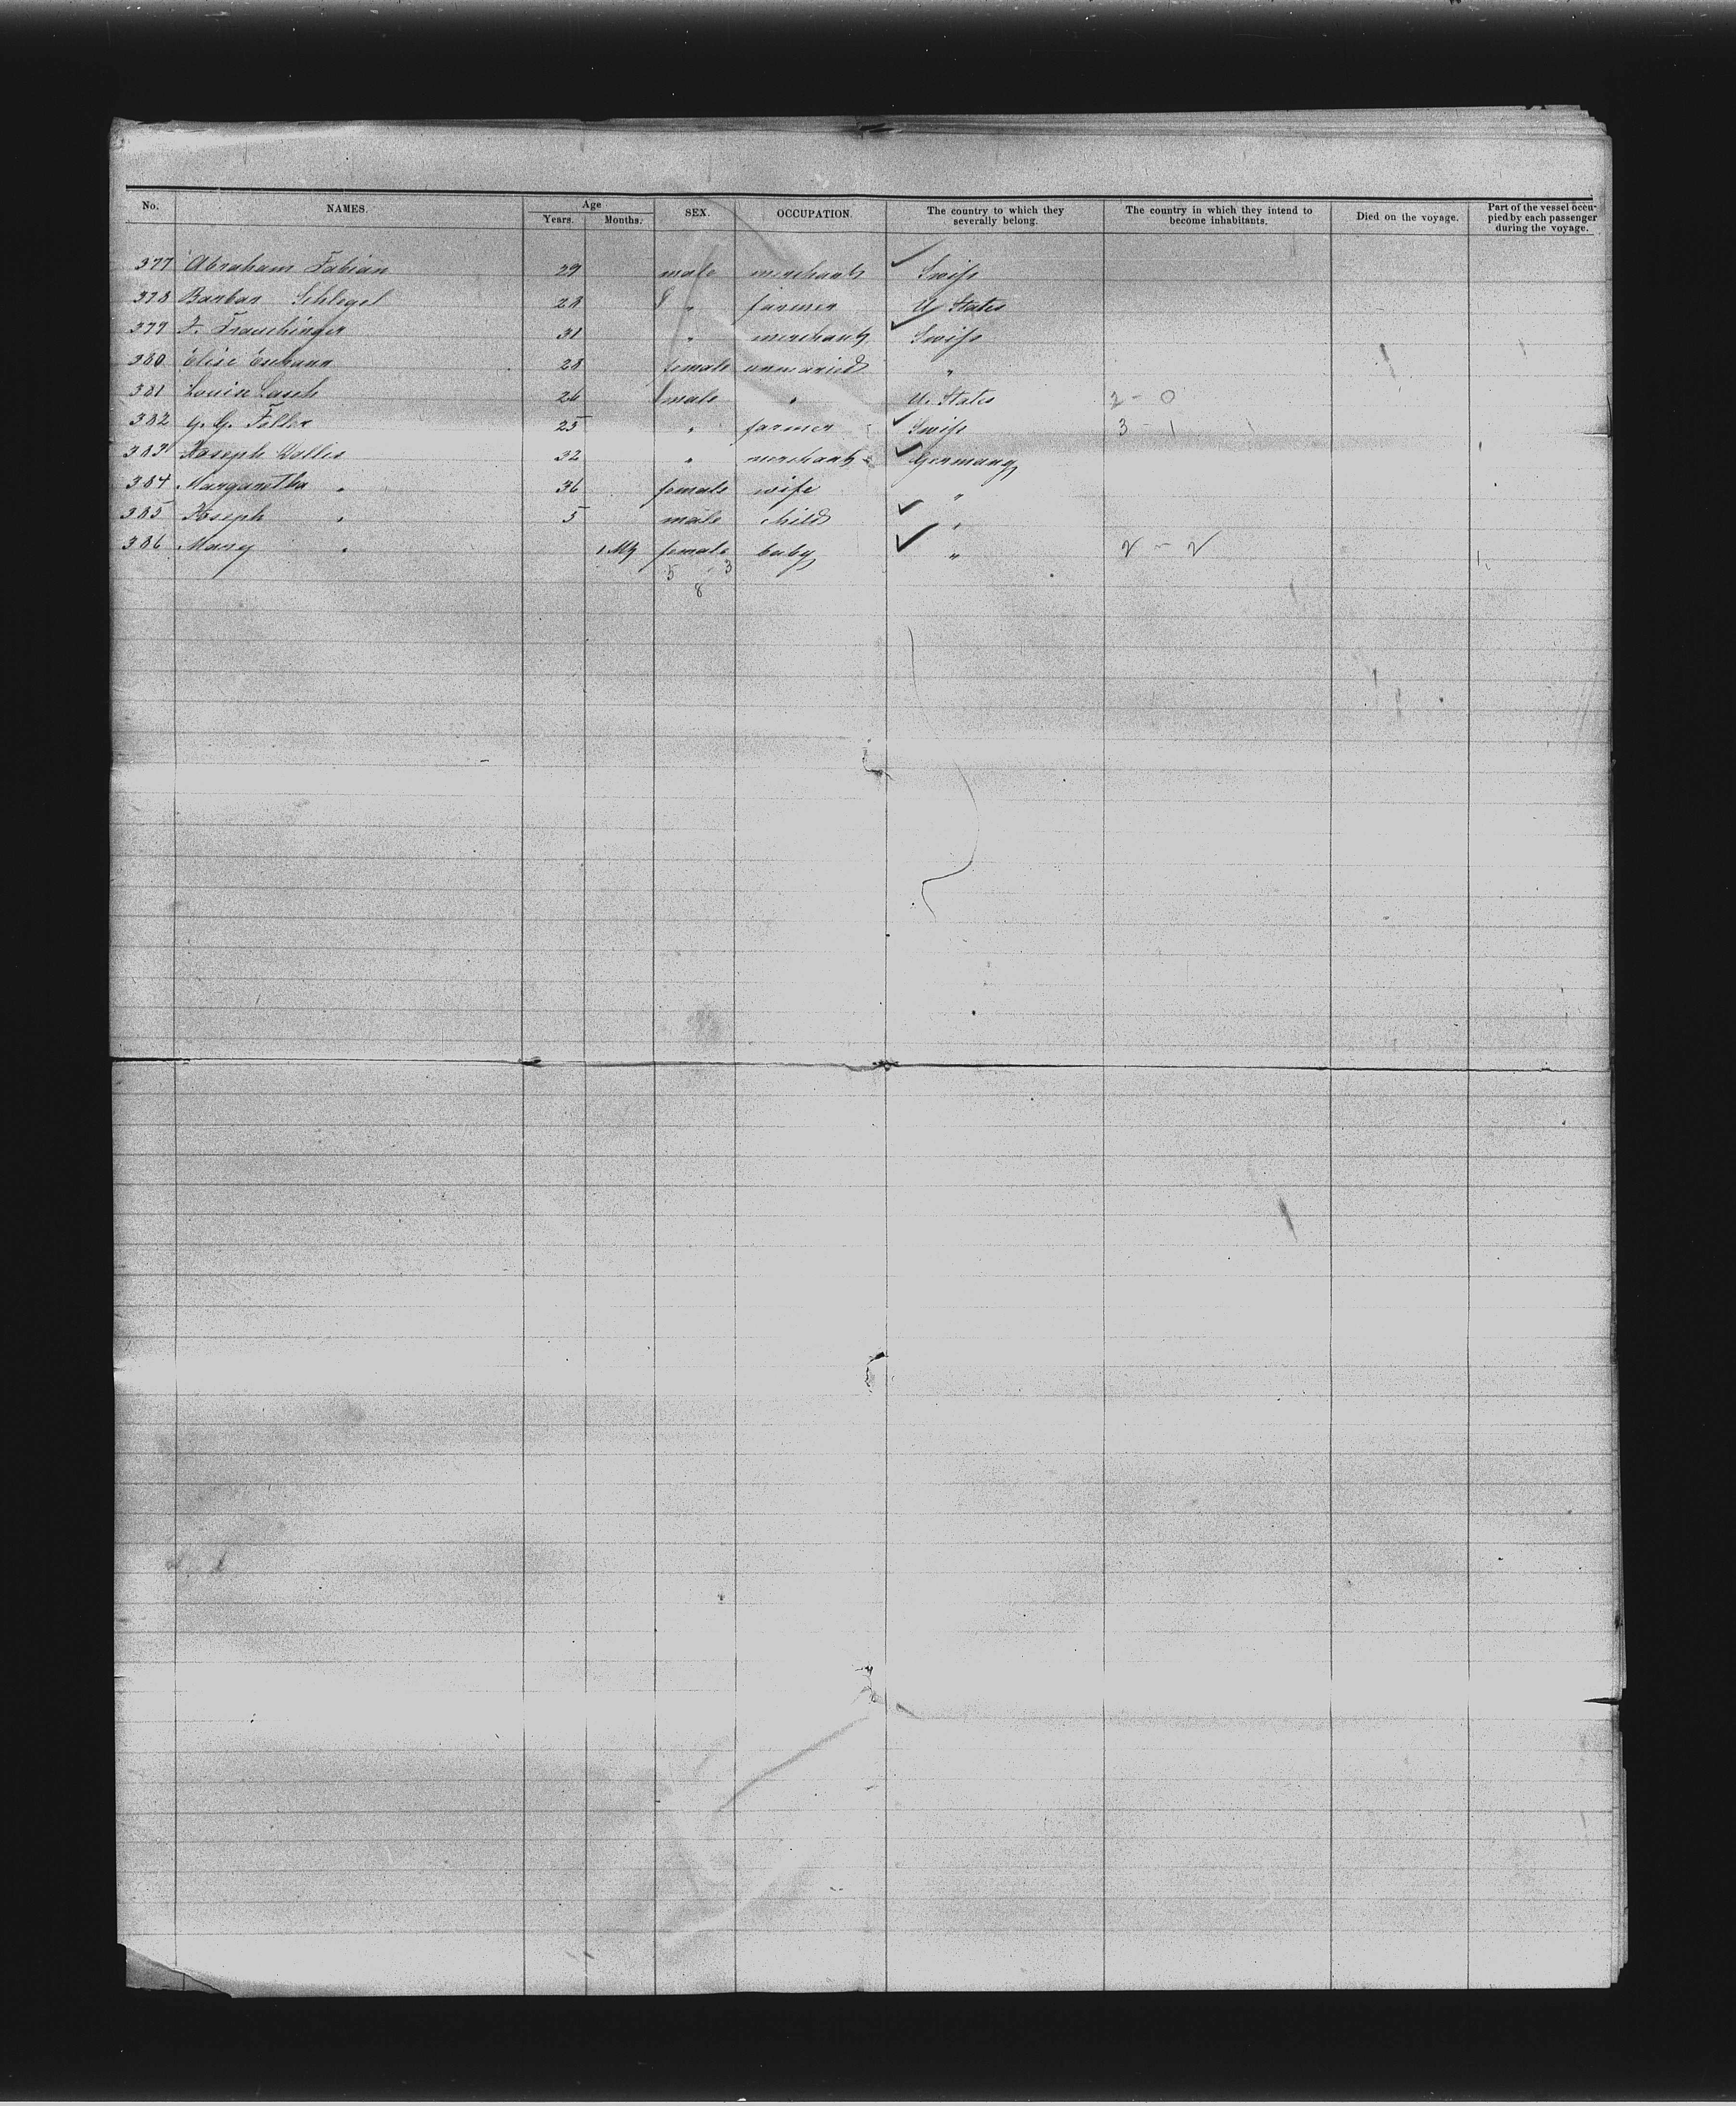 No. NAMES. Age Years. Months. SEX. OCCUPATION. The country to which they severally belong. The country in which they intend to become inhabitants. Died on the voyage. Part of the vessel occupied by each passenger during the voyage.
377 Abraham Fabian 29 male merchant ✓ Swiss
378 Barbar Schlegel 28 " farmer U. States
379 F. Frauchinger 31 " merchant ✓ Swiss
380 Elise 28 female unmaried "
381 Louise 26 male " U. States 2 - 0
382 G. G. Feller 25 " farmer ✓ Swiss 3 - 1
383 Joseph Wollis 32 " merchant ✓ Germany
384 Margaretha " 36 female wife "
385 Joseph " 5 male child ✓ "
386 Mary " 1 female baby ✓ " 2 - 2
5 3
8